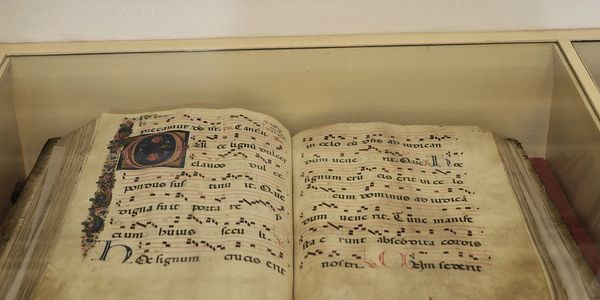 precamur do nr. ps. Cantate
ulce lignū dulces
clavos dul ce
pondus sus tinu it. Que
digna fuit porta re p
cium huius secu li.
Hoc signum crucis erit
in celo cū dn̄s ad iudican
dum vene rit. Que V Hoc
signum cru cis erit in ce lo
cum dominus ad iudicā
dum vene rit. Tūnc manife
sta e runt abscondita cordis
nostri. Cum sederit